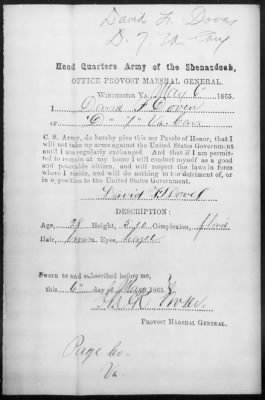 David F. Dovel
D. 7. Va Cav
Head Quarters Army of the Shenandoah,
OFFICE PROVOST MARSHAL GENERAL.
WINCHESTER VA. May 6" 1865.
I David F Dovel
OF "D" 7" Va. Cav
C. S. Army, do hereby give this my Parole of Honor, that I
will not take up arms against the United States Government
until I am regularly exchanged. And that if I am permit-
ted to remain at my home I will conduct myself as a good
and peaceable citizen, and will respect the laws in force
where I reside, and will do nothing to the detriment of, or
in opposition to the United States Government.
David F Dovel
DESCRIPTION:
Age, 28 Height, 5.10 Complexion, florid
Hair, brown Eyes, hazel
Sworn to and subscribed before me,
this 6" day of May 1865.
PROVOST MARSHAL GENERAL.
Page Co.
Va.